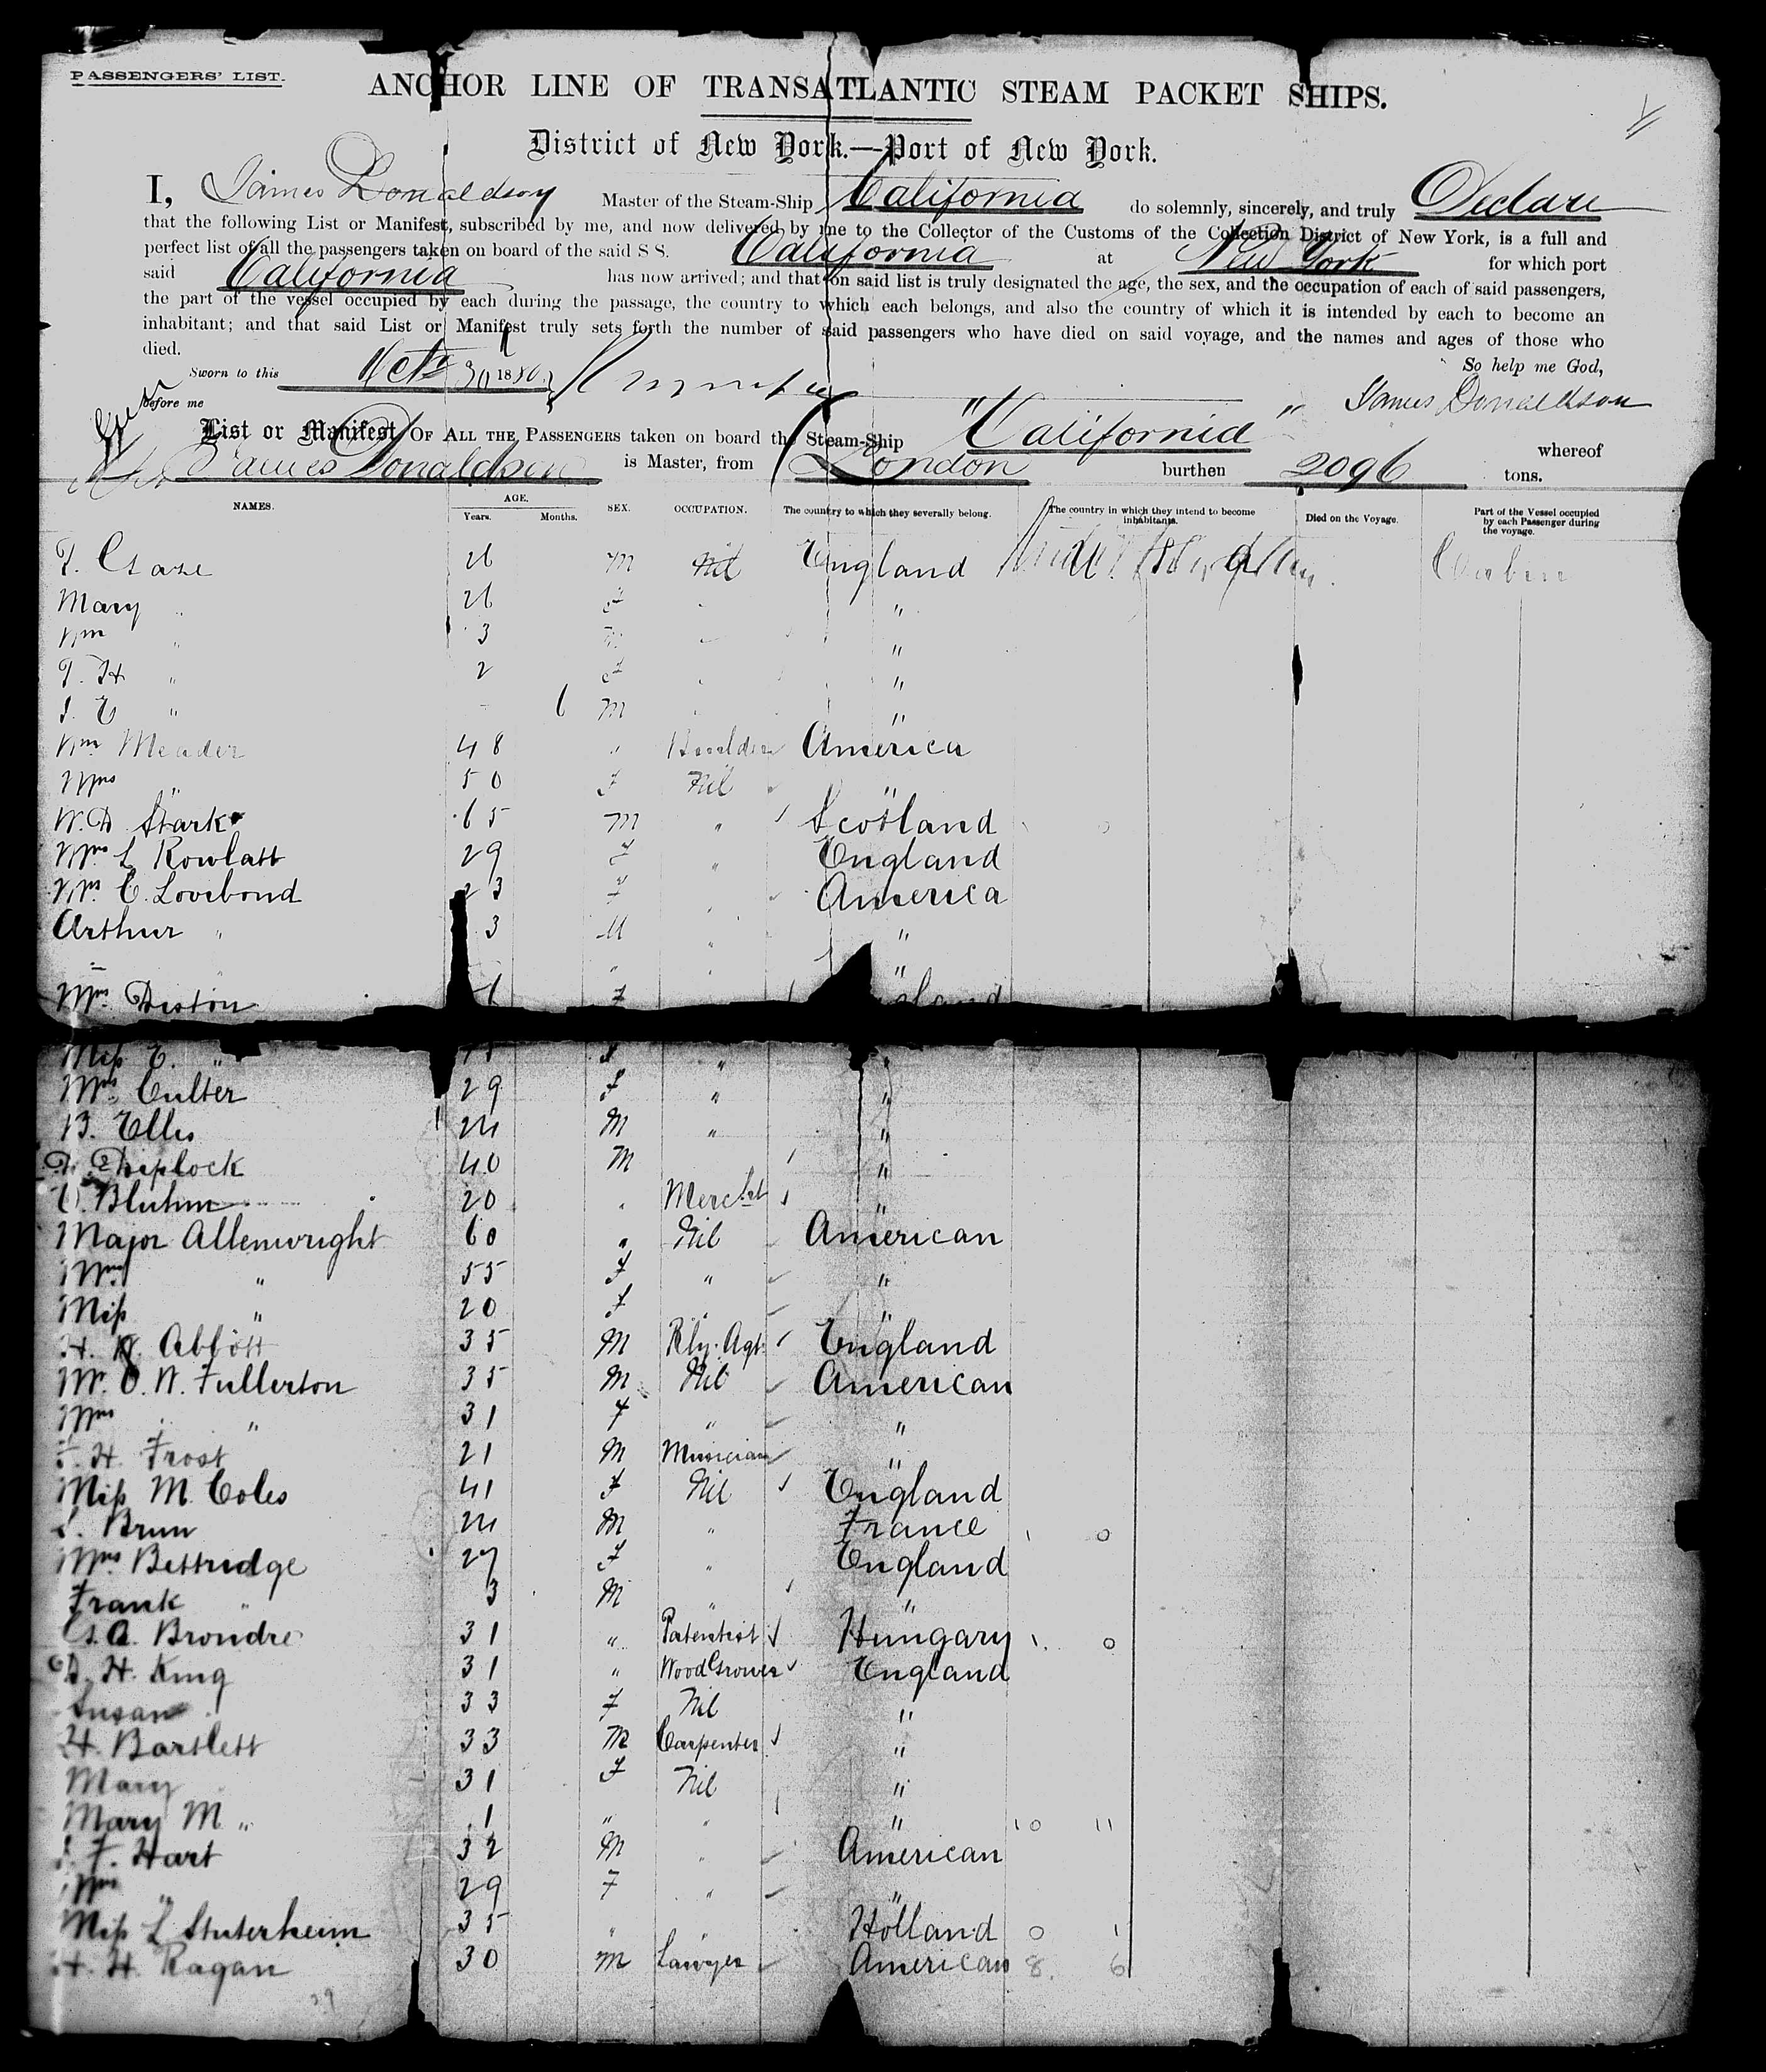 PASSENGERS' LIST.
ANCHOR LINE OF TRANSATLANTIC STEAM PACKET SHIPS.
District of New York.—Port of New York.
I, James Donaldson Master of the Steam-Ship California do solemnly, sincerely, and truly Declare
that the following List or Manifest, subscribed by me, and now delivered by me to the Collector of the Customs of the Collection District of New York, is a full and
perfect list of all the passengers taken on board of the said S S. California at New York for which port
said California has now arrived; and that on said list is truly designated the age, the sex, and the occupation of each of said passengers,
the part of the vessel occupied by each during the passage, the country to which each belongs, and also the country of which it is intended by each to become an
inhabitant; and that said List or Manifest truly sets forth the number of said passengers who have died on said voyage, and the names and ages of those who
died.
So help me God,
Sworn to this Octr 30 1880
James Donaldson
before me
List or Manifest OF ALL THE PASSENGERS taken on board the Steam-Ship "California" whereof
James Donaldson is Master, from London burthen 2096 tons.
NAMES. AGE. Years. Months. SEX. OCCUPATION. The country to which they severally belong. The country in which they intend to become inhabitants. Died on the Voyage. Part of the Vessel occupied by each Passenger during the voyage.
26 M Nil England Cabin
Mary " 26 F "
Wm " 3 "
T. H " 2 F "
" 6 M "
Wm Meader 48 " America
Mrs " 50 F Nil "
W. D Stark 65 M " Scotland
Mrs L Rowlatt 29 F " England
Mrs C. Lovebond 23 F " America
Arthur " 3 M " "
" " "
Mrs Deston F
Miss E. " " "
Mrs Culter 29 F " "
B. Ellis 24 M " "
Diplock 40 M "
Bluhm 20 " Mercht "
Major Allenwright 60 " Nil American
Mrs " 55 F " "
Miss " 20 F "
H. Abbott 35 M Rly. Agt. England
Mr. O. W. Fullerton 35 M Nil American
Mrs " 31 F " "
F. H. Frost 21 M Musician "
Miss M. Coles 41 F Nil England
Brun 24 M " France 0
Mrs Bettridge 27 F " England
Frank " 3 M " "
Brondre 31 " Patentist Hungary 0
D. H. King 31 " Wood Grower England
Susan 33 F Nil "
H. Bartlett 33 M Carpenter "
Mary 31 F Nil "
Mary M. " 1 " " " 10 11
F. Hart 32 M " American
Mrs " 29 F " "
Miss L Stuterheim 35 " " Holland 0 1
H. H. Ragan 30 M Lawyer American 8. 6
29